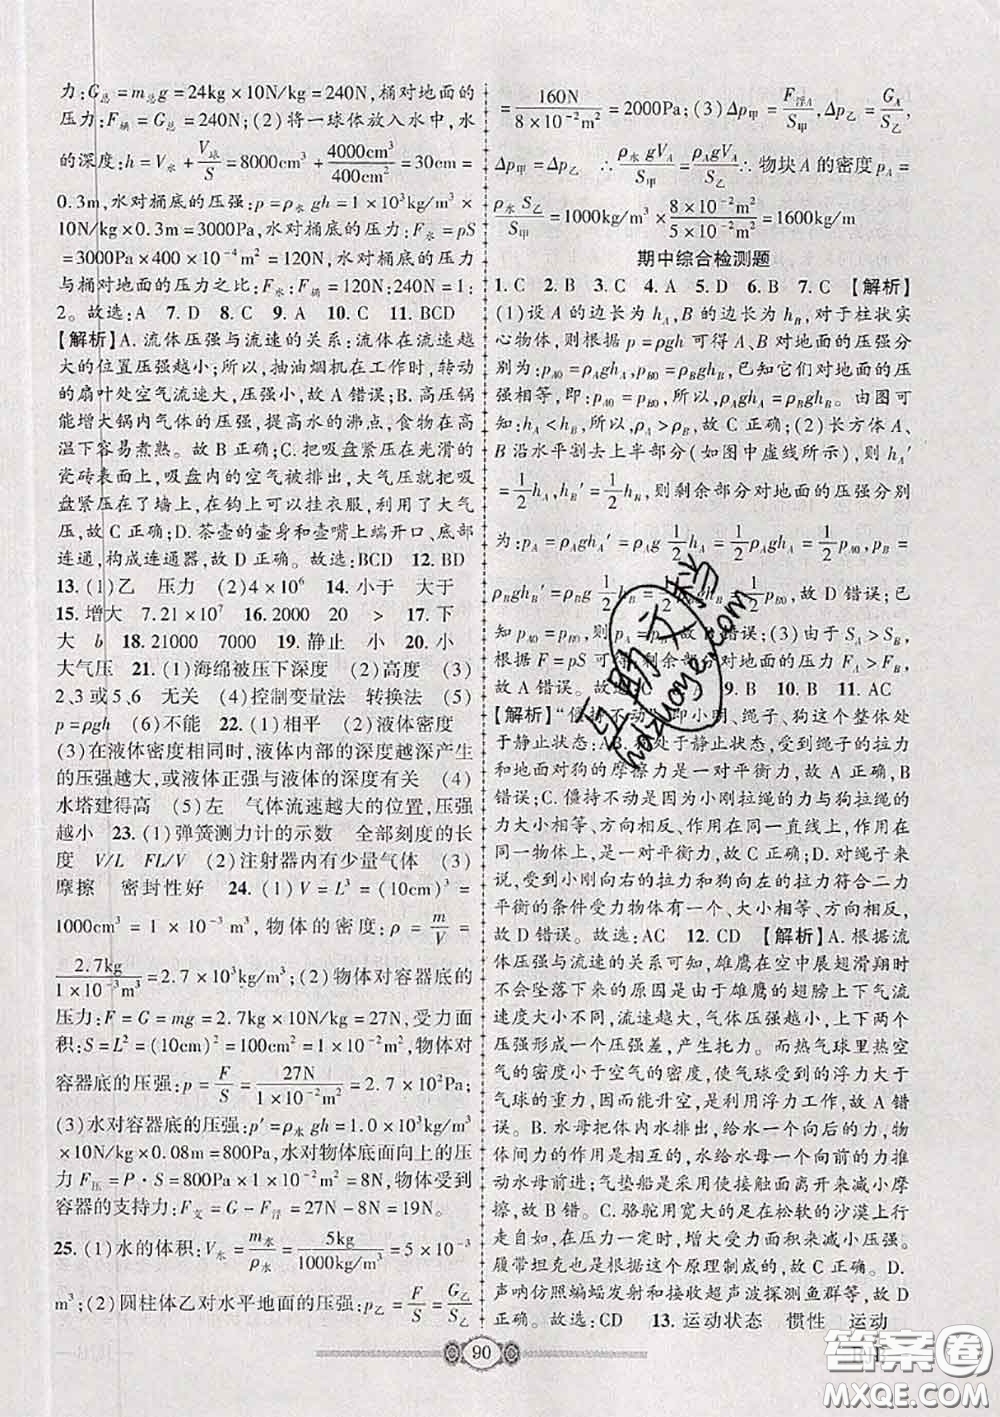 力:G总=m总g=24kg×10N/kg=240N,桶对地面的
压力:F桶=G总=240N;(2)将一球体放入水中,水
的深度:h=V水+V球/S=8000cm³+4000cm³/400cm²=30cm=
0.3m,水对桶底的压强:p=ρ水gh=1×10³kg/m³×
10N/kg×0.3m=3000Pa,水对桶底的压力:F水=pS
=3000Pa×400×10⁻⁴m²=120N,水对桶底的压力
与桶对地面的压力之比:F水:F桶=120N:240N=1:
2。故选:A 7.D 8.C 9.A 10.C 11.BCD
【解析】A.流体压强与流速的关系:流体在流速越
大的位置压强越小;所以,抽油烟机在工作时,转动
的扇叶处空气流速大,压强小,故A错误;B.高压锅
能增大锅内气体的压强,提高水的沸点,食物在高
温下容易煮熟。故B正确;C.把吸盘紧压在光滑的
瓷砖表面上,吸盘内的空气被排出,大气压就把吸
盘紧压在了墙上,在钩上可以挂衣服,利用了大气
压,故C正确;D.茶壶的壶身和壶嘴上端开口、底部
连通,构成连通器,故D正确。故选:BCD 12.BD
13.(1)乙 压力 (2)4×10⁶ 14.小于 大于
15.增大 7.21×10⁷ 16.2000 20 > 17.下
大 b 18.21000 7000 19.静止 小 20.小
大气压 21.(1)海绵被压下深度 (2)高度 (3)
2、3或5、6 无关 (4)控制变量法 转换法 (5)
p=ρgh (6)不能 22.(1)相平 (2)液体密度
(3)在液体密度相同时,液体内部的深度越深产生
的压强越大,或液体压强与液体的深度有关 (4)
水塔建得高 (5)左 气体流速越大的位置,压强
越小 23.(1)弹簧测力计的示数 全部刻度的长
度 V/L FL/V (2)注射器内有少量气体 (3)
摩擦 密封性好 24.(1)V=L³=(10cm)³=
1000cm³=1×10⁻³m³,物体的密度:ρ=m/V=
2.7kg/1×10⁻³m³=2.7×10³kg/m³;(2)物体对容器底的
压力:F=G=mg=2.7kg×10N/kg=27N,受力面
积:S=L²=(10cm)²=100cm²=0.01m²,物体对
容器底的压强:p=F/S=27N/1×10⁻²m²=2.7×10³Pa;
(3)水对容器底的压强:p′=ρ水gh=1.0×10³kg/m³
×10N/kg×0.08m=800Pa,水对物体底面向上的压
力F压=P·S=800Pa×1×10⁻²m²=8N,物体受到
容器的支持力:F支=G-F浮=27N-8N=19N。
25.(1)水的体积:V水=m水/ρ水=5kg/1000kg/m³=5×10⁻³
m³;(2)圆柱体乙对水平地面的压强:p乙=F/S=G乙/S乙
=160N/8×10⁻²m²=2000Pa;(3)Δp甲=F浮A/S甲,Δp乙=GA/S乙
Δp甲=Δp乙 ∴ρ水gVA/S甲=ρAgVA/S乙∴物块A的密度ρA=
ρ水S乙/S甲=1000kg/m³×8×10⁻²m²/5×10⁻²m²=1600kg/m
期中综合检测题
1.C 2.B 3.C 4.A 5.D 6.B 7.C 【解析】
(1)设A的边长为hA,B的边长为hB,对于柱状实
心物体,则根据p=ρgh可得A、B对地面的压强分
别为:pA0=ρAghA,pB0=ρBghB;已知它们对地面的压
强相等,即:pA0=pB0,所以,ρAghA=ρBghB;由图可
知:hA<hB,所以,ρA>ρB,故C正确;(2)长方体A、
B沿水平割去上半部分(如图中虚线所示),则hA′
=1/2hA,hB′=1/2hB,则剩余部分对地面的压强分别
为:pA=ρAghA′=ρAg 1/2hA=1/2ρAghA=1/2pA0,pB=
ρBghB′=ρBg 1/2hB=1/2ρBghB=1/2pB0,故D错误;已
知pA0=pB0,则pA=pB,故B错误;(3)由于SA>SB,
根据F=pS可得,剩余部分对地面的压力FA>FB,
故A错误。故选:C 9.B 10.B 11.AC
【解析】“僵持不动”,即小明、绳子、狗这个整体处
于静止状态;AB.处于静止状态,受到绳子的拉力
和地面对狗的摩擦力是一对平衡力,故A正确,B
错误;C.僵持不动是因为小刚拉绳的力与狗拉绳
的力大小相等、方向相反、作用在同一直线上,作用在
同一物体上,是一对平衡力,故C正确;D.对绳子来
说,受到小刚向右的拉力和狗向左的拉力符合二力
平衡的条件受力物体有一个、大小相等、方向相反,
故D错误。故选:AC 12.CD 【解析】A.根据流
体压强与流速的关系可知,雄鹰在空中展翅滑翔时
不会坠落下来的原因是由于雄鹰的翅膀上下气流
速度大小不同,流速越大,气体压强越小,上下两个
压强形成一个压强差,产生托力。而热气球里热空
气的密度小于空气的密度,使气球受到的浮力大于
气球的重力,因而能升空,是利用浮力工作,故A错
误。B.水母把体内水排出,给水一个向后的力,物
体间力的作用是相互的,水给水母一个向前的力推
动水母前进;气垫船是采用使接触面离开来减小摩
擦,故B错。C.骆驼用宽大的足在松软的沙漠上行
走自如,是在压力一定时,增大受力面积减小压强。
履带坦克是根据这个原理制成的,故C正确。D.
声呐仿照蝙蝠发射和接收超声波探测鱼群等,故D
正确。故选:CD 13.运动状态 惯性 运动
90
答案卷
MXQE.COM
hdzuoye.com